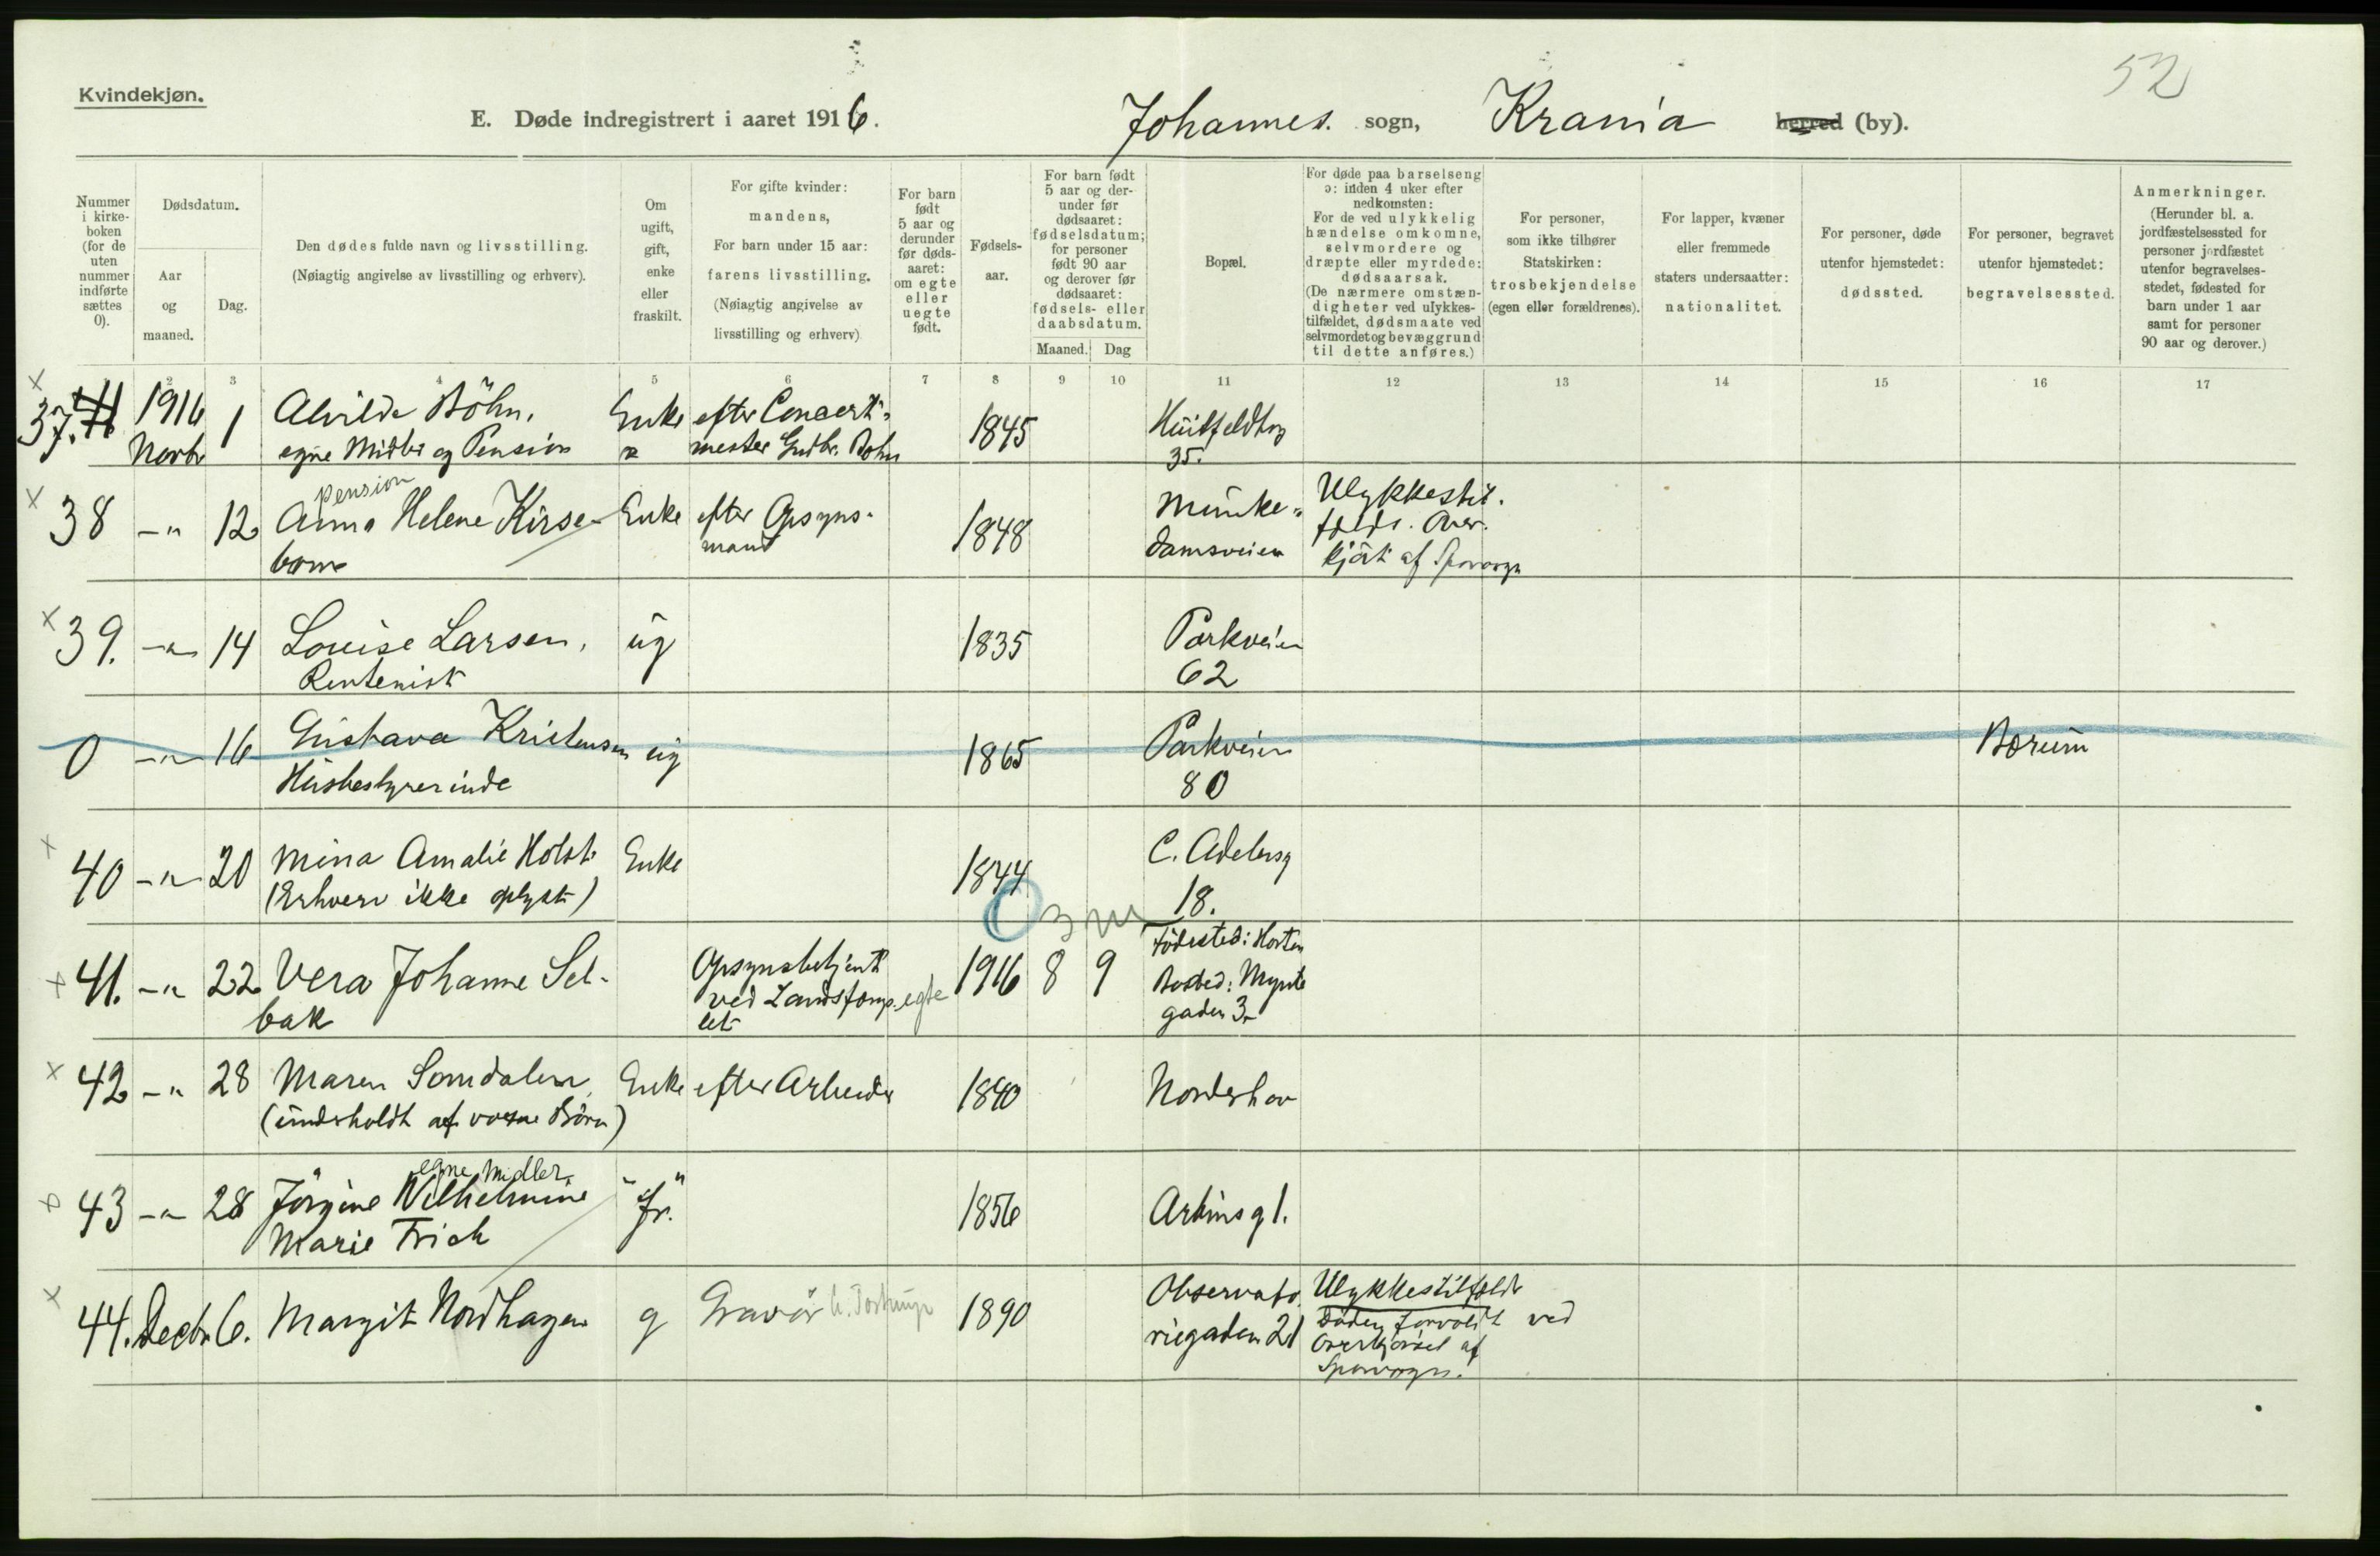 52
Kvindekjøn.
E. Døde indregistrert i aaret 1916. Johannes. sogn, Krania herred (by).
Nummer i kirkeboken (for de uten nummer indførte sættes 0).
Dødsdatum.
Aar og maaned.
Dag.
Den dødes fulde navn og livsstilling.
(Nøiagtig angivelse av livsstilling og erhverv).
Om ugift, gift, enke eller fraskilt.
For gifte kvinder: mandens, For barn under 15 aar: farens livsstilling. (Nøiagtig angivelse av livsstilling og erhverv)
For barn født 5 aar og derunder før dødsaaret: om egte eller uegte født.
Fødselsaar.
For barn født 5 aar og derunder før dødsaaret: fødselsdatum; for personer født 90 aar og derover før dødsaaret: fødsels- eller daabsdatum.
Maaned. Dag
Bopæl.
For døde paa barselseng ɔ: inden 4 uker efter nedkomsten: For de ved ulykkelig hændelse omkomne, selvmordere og dræpte eller myrdede: dødsaarsak. (De nærmere omstændigheter ved ulykkestilfældet, dødsmaate ved selvmordet og bevæggrund til dette anføres.)
For personer, som ikke tilhører Statskirken: trosbekjendelse (egen eller forældrenes).
For lapper, kvæner eller fremmede staters undersaatter: nationalitet.
For personer, døde utenfor hjemstedet: dødssted.
For personer, begravet utenfor hjemstedet: begravelsessted.
Anmerkninger. (Herunder bl. a. jordfæstelsessted for personer jordfæstet utenfor begravelsesstedet, fødested for barn under 1 aar samt for personer 90 aar og derover.)
2 3 4 5 6 7 8 9 10 11 12 13 14 15 16 17
37. 1916 Novbr 1 Alvilde Böhn, Enke efter Concert- 1845 Huitfeldtsg
egne Midler og Pension mester Gudbr. Bohn 35.
pension
38 -"- 12 Anna Helene Kirse- Enke efter Opsyns- 1848 Munke- Ulykkestil.
bom mand damsveien fælde. Over.
kjørt af Sporvogn
39. -"- 14 Louise Larsen, ug 1835 Parkveien
Rentenist 62
0 -"- 16 Gustava Kristensen ug 1865 Parkveien Bærum
Husbestyrerinde 80
40 -"- 20 Mina Amalie Holst Enke 1844 C. Adelersg
(Erhverv ikke oplyst) 18.
3 m
41. -"- 22 Vera Johanne Sel- Opsynsbetjent 1916 8 9 Födested: Horten
bak ved Landsfængs- egte Bosted: Mynte
let gaden 3
42 -"- 28 Maren Somdalen, Enke efter Arbeider 1840 Norderhov
(underholdt af voxne Börn)
egne Midler
43 -"- 28 Jörgine Wilhelmine "fr." 1856 Arbins g 1.
Marie Frich
44. Decbr. 6. Margit Nordhagen g Gravör 1890 Observato. Ulykkestilfælde
riegaden 21 Döden forvoldt ved
Overkjörsel af
Sporvogn.